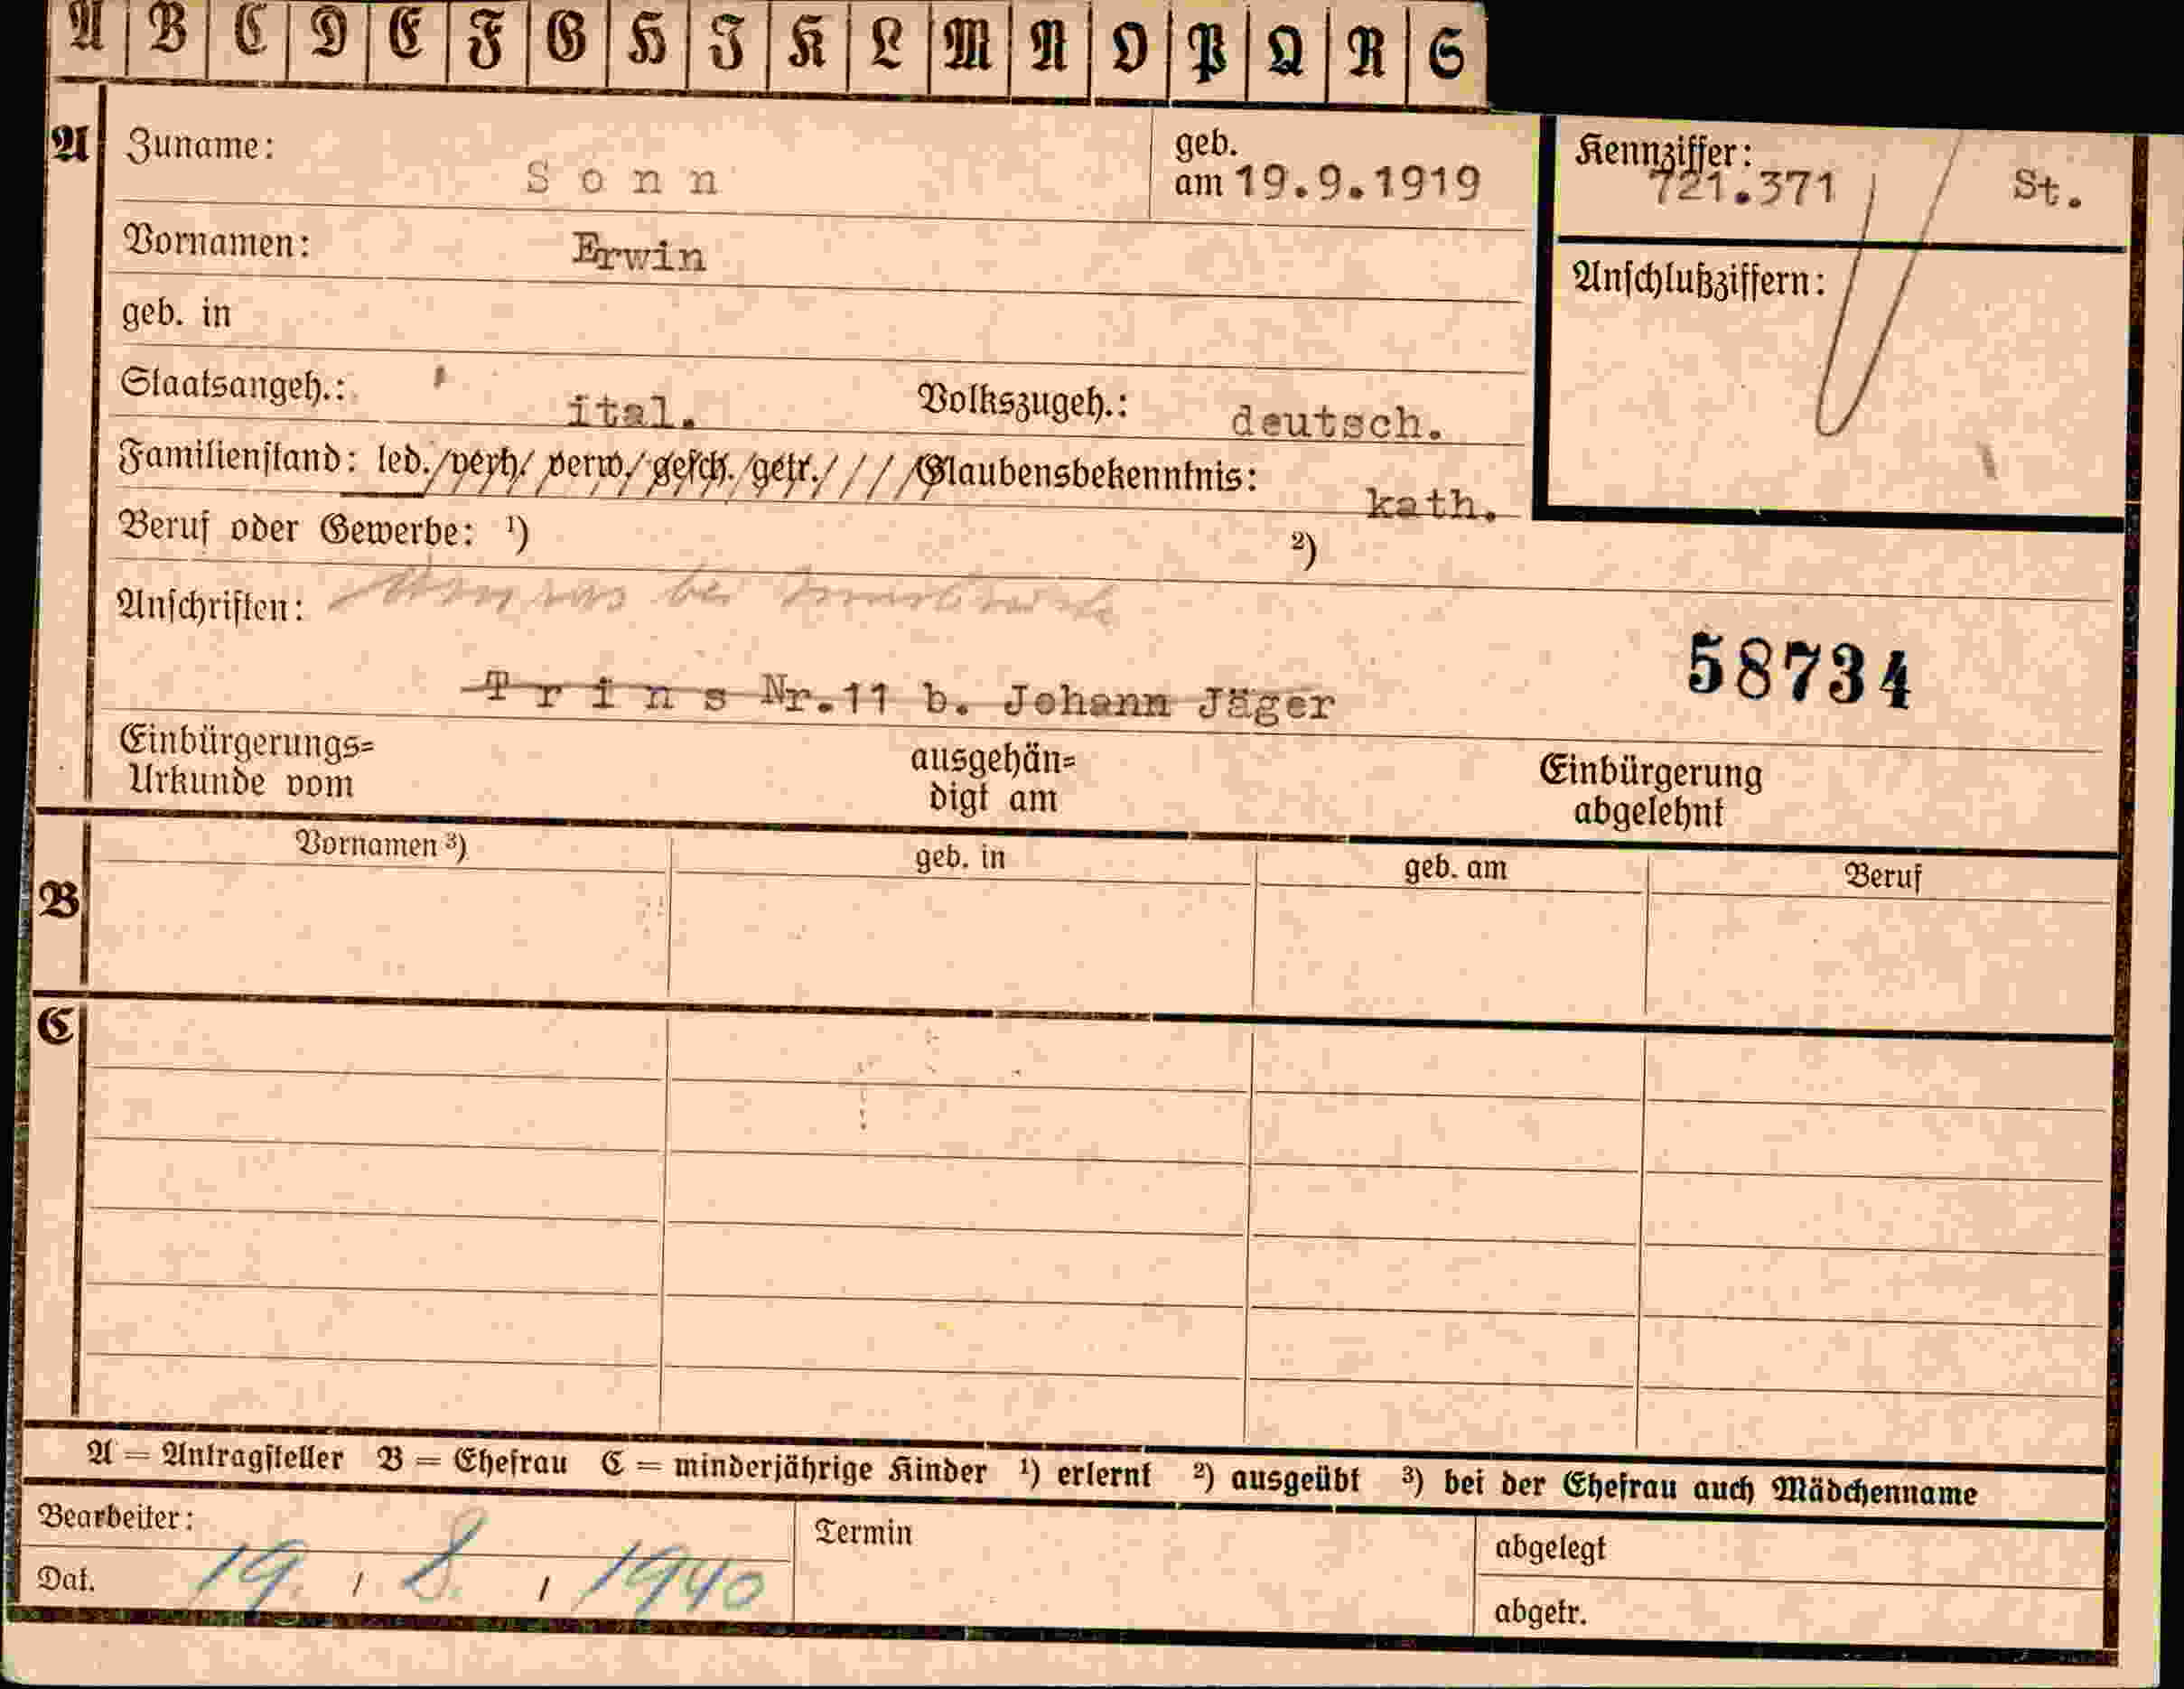 A B C D E F G H I K L M N O P Q R S
A Zuname: Sonn geb. am 19.9.1919
Kennziffer: 721.371 St.
Vornamen: Erwin
Anschlußziffern:
geb. in
Staatsangeh.: ital. Volkszugeh.: deutsch.
Familienstand: led./verh/ verw/ gesch./getr./ / / /Glaubensbekenntnis: kath.
Beruf oder Gewerbe: ¹) ²)
Anschriften: bei Innsbruck
58734
Trins Nr.11 b. Johann Jäger
Einbürgerungs= ausgehän= Einbürgerung
Urkunde vom digt am abgelehnt
B Vornamen ³) geb. in geb. am Beruf
C
A = Antragsteller B = Ehefrau C = minderjährige Kinder ¹) erlernt ²) ausgeübt ³) bei der Ehefrau auch Mädchenname
Bearbeiter: Termin abgelegt
Dat. 19. / 8. / 1940 abgetr.